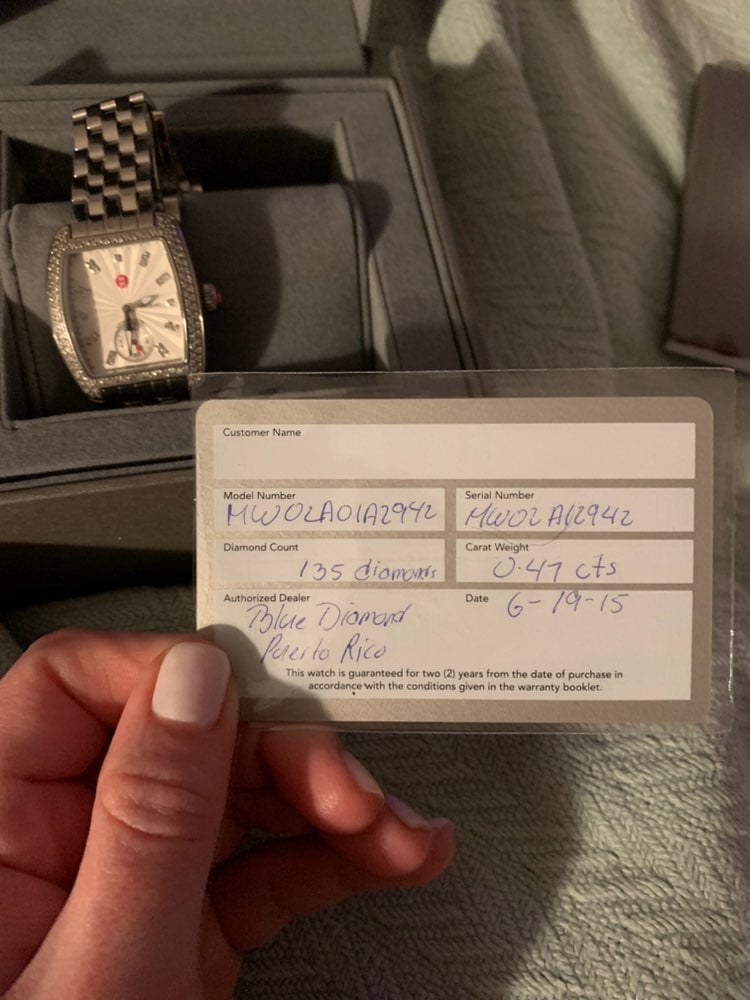 Customer Name
Model Number
MW02A01A2942
Serial Number
MW02A12942
Diamond Count
135 diamonds
Carat Weight
0.47 cts
Authorized Dealer
Blue Diamond
Puerto Rico
Date 6-19-15
This watch is guaranteed for two (2) years from the date of purchase in
accordance with the conditions given in the warranty booklet.